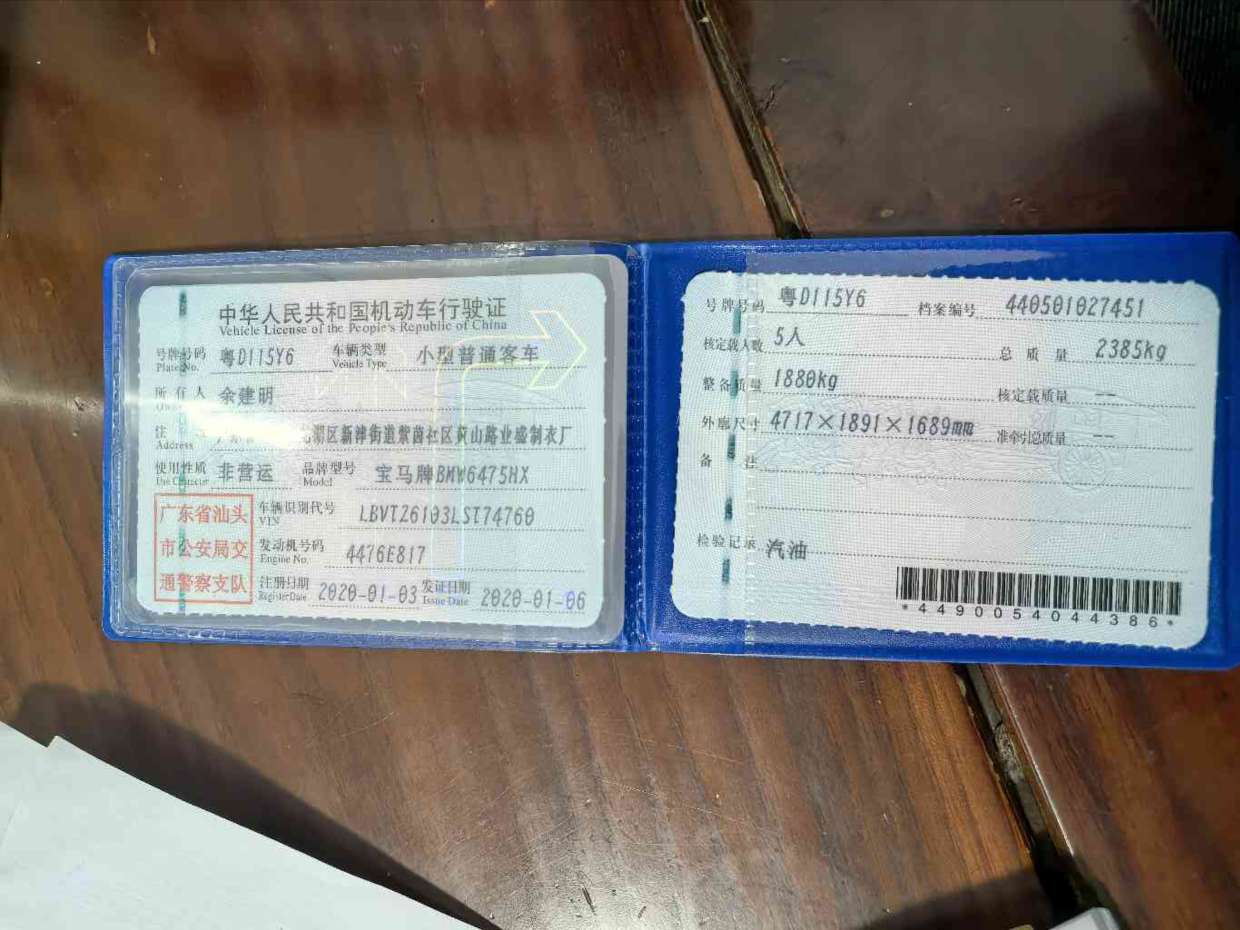 中华人民共和国机动车行驶证
Vehicle License of the People's Republic of China
号牌号码 粤D115Y6 车辆类型 小型普通客车
Plate No. Vehicle Type
所有人 余建明
Owner
住
Address 湖区新津街道紫茵社区黄山路业盛制衣厂
使用性质 非营运 品牌型号 宝马牌BMW6475HX
Use Character Model
广东省汕头
市公安局交
通警察支队
车辆识别代号 LBVTZ6103LST74760
VIN
发动机号码 4476E817
Engine No.
注册日期 2020-01-03 发证日期 2020-01-06
Register Date Issue Date
号牌号码 粤D115Y6 档案编号 440501027451
核定载人数 5人 总质量 2385kg
整备质量 1880kg 核定载质量 --
外廓尺寸 4717×1891×1689mm 准牵引总质量 --
备注
检验记录 汽油
*4490054044386*